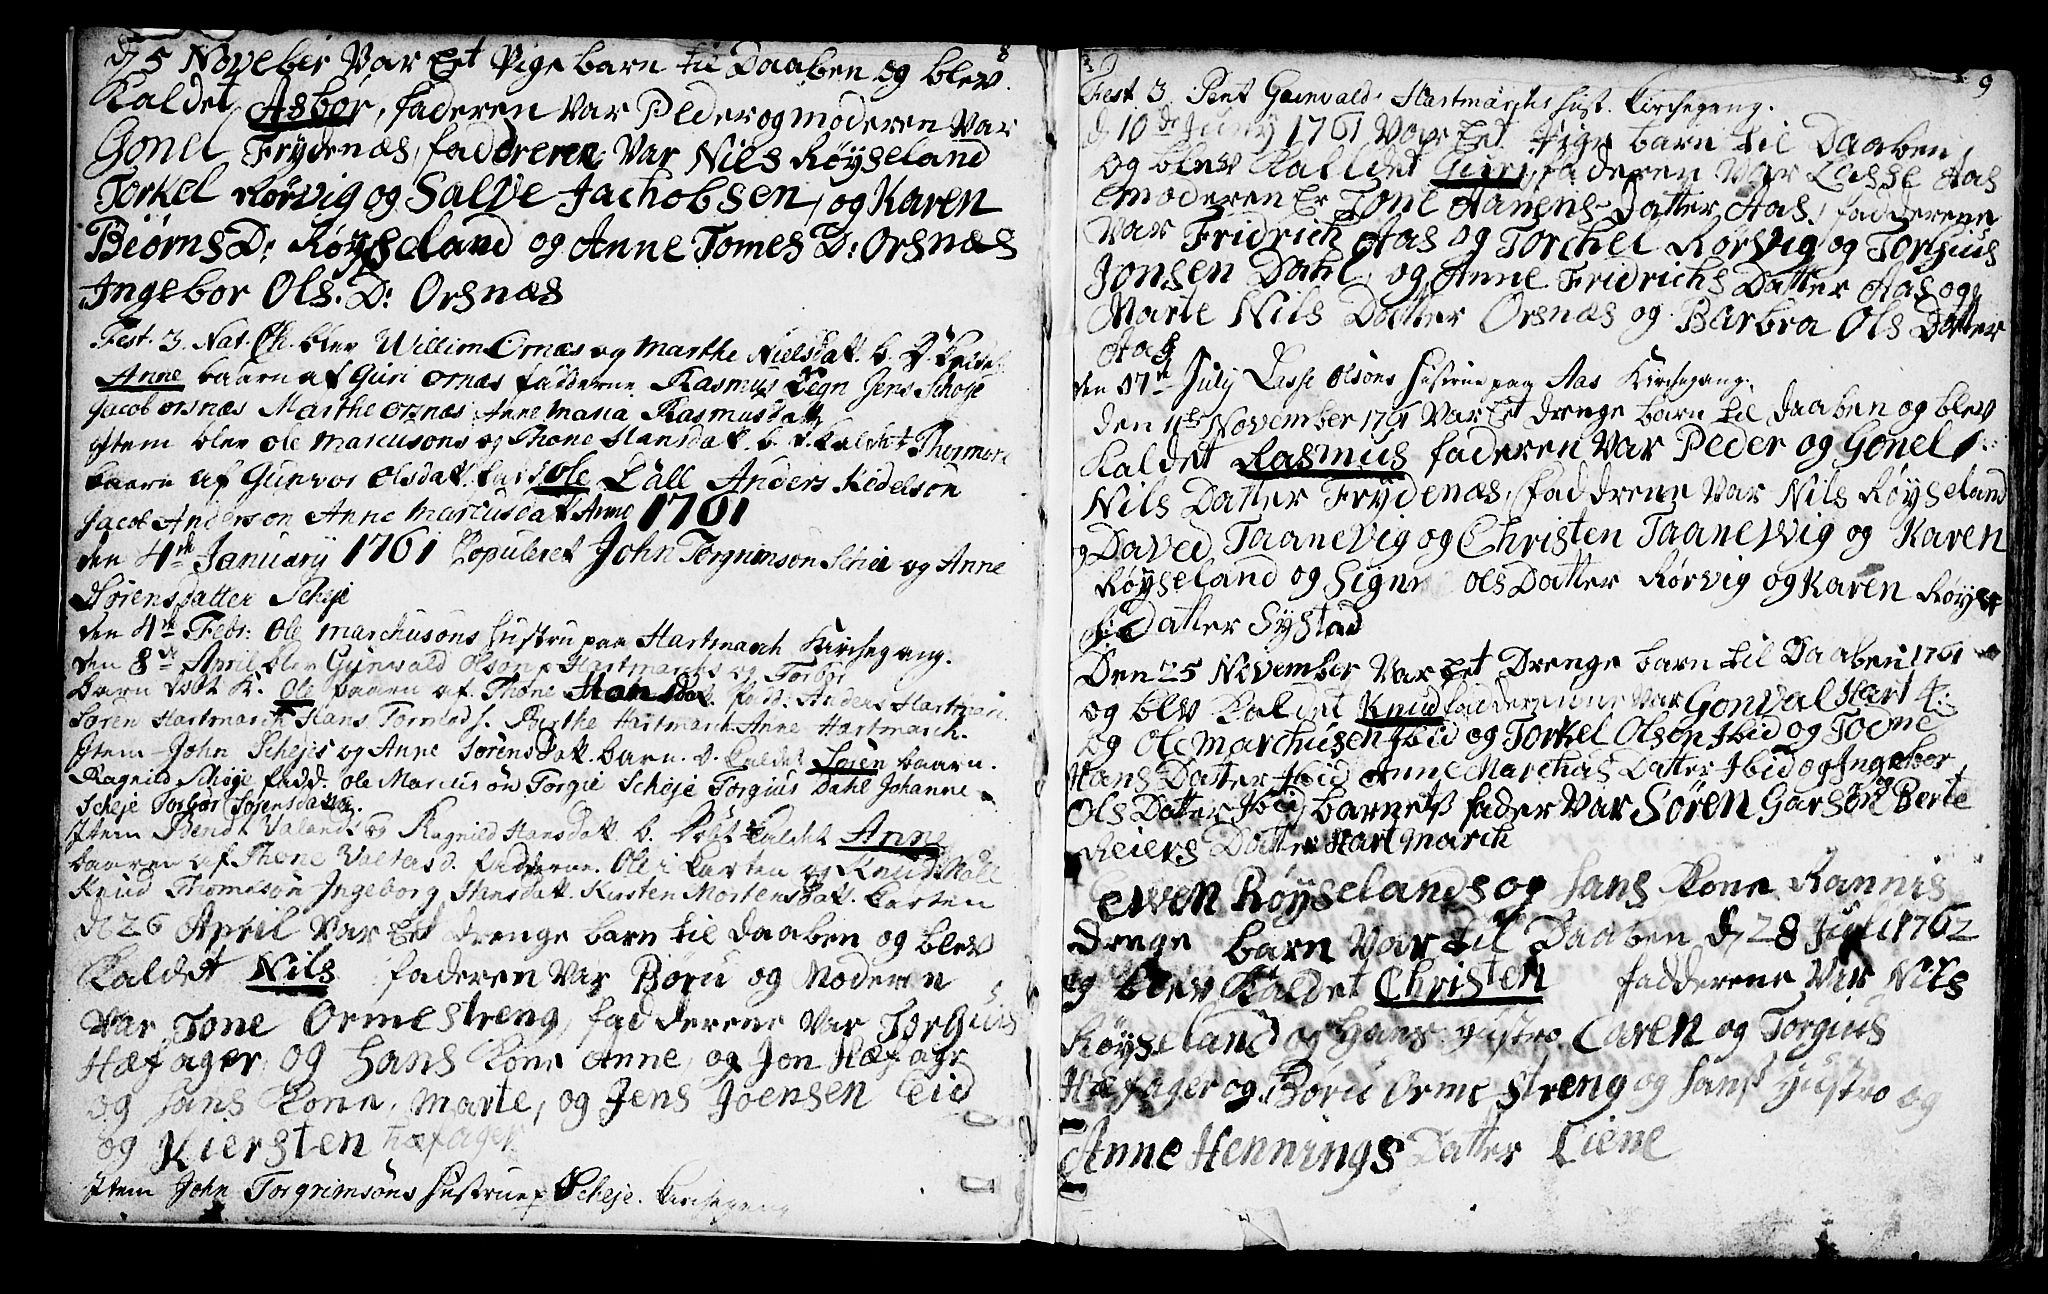 8
d 5 Noveber Var Eet Pige barn til Daaben og blev
Kaldet Asbor, faderen Var Peder og moderen Var
Gonel Frydenæs, faddreren Var Nils Røyseland
Torkel Rørvig og Salve Jachobsen, og Karen
Biørns D: Røyseland og Anne Tomes D: Orsnæs
Ingebor Ols. D: Orsnæs
Fest. 3. Nat. Ch. blev Willim Ornæs og Marthe Nielsdatt. b.
Anne baarn af Guri Ornæs fadderne Rasmus Degn Jens
Jacob Orsnæs Marthe Orsnæs Anne Maria Rasmusdatt
Item blev Ole Marcusøns og Thone Hansdatt. b.
baarn af Gunvor Olsdatt. Ole Lall Anders Kedelsøn
Jacob Andersøn Anne Marcusdatt Anno 1761
den 4de January 1761 Copuleret John Torgrimsøn Scheie og Anne
Sørensdatter Scheje
den 4de Febr: Ole Marchusøns Hustru paa Hartmarch Kirchegang.
den 8de April blev Gunvald Olsøn Hartmarchs og Torbor
barn døbt K. Ole baaren af Thone Hansdat. fadd: Anders Hartmarch.
Søren Hartmarch Hans Berthe Hartmarch Anne Hartmarch.
Item John Schejes og Anne Sørensdatt. barn. d. kaldet Søren baarn.
Ragnild Scheje fadd. Ole Marcusøn Torgie Scheje Torgius Dahl Johanne
Scheje Torbor Sørensdatter.
Item Bendt Valand og Ragnild Hansdatt. b. døbt kaldet Anne
baaren af Thone fadderne. Ole i Karten og Knud
Knud Thomesøn Ingeborg Hansdatt. Kirsten Mortensdatt. Karten
d 26 April Var Eet drenge barn til daaben og blev
Kaldet Nils faderen Var Børu og Moderen
Var Tone Ormestreng, fadderene Var Torgius
Hæfager og hans Kone Anne, og Jon Hæfagr
og hans Kone, Marte, og Jens Joensen Eid
og Kiersten Hæfager
Item John Torgrimsøns Hustrue Scheje. Kirchegang
9
Fest. 3 Pent Gunvald Hartmarchs Hust. Kirchegang.
d 10de Juny 1761 Var Eet Pige barn til Daaben
og blev Kalldet Guri, faderen Var Lasse Aas
Moderen Er Tone Aanens Datter Aas, fadderene
Var Fridrich Aas og Torchel Rørvig og Torgius
Jonsen Dahl, og Anne Fridrichs Datter Aas og
Marte Nils Datter Orsnæs og Barbra Ols Datter
Aas
den 17de July Lasse Olsøns Hustrue paa Aas Kirchegang.
den 1te November 1761 Var Eet drenge barn til Daaben og blev
Kaldet Rasmus faderen Var Peder og Gonel
Nils Datter Frydenæs, faddrene Var Nils Røyseland
og Daved Taanevig og Christen Taanevig og Karen
Røyseland og Signe Ols Datter Rørvig og Karen Røyer
Datter Systad
Den 25 November Var Eet Drenge barn til Daaben 1761
og blev Kaldet Knud fadderenne Var Gonval Hart
og Ole Marchusen Ibid og Torkel Olsøn Ibid og Tone
Hans Datter Ibid Anne Marchus Datter Ibid og Ingebor
Ols Datter Ibid barnets fader Var Søren Garsøn og Berte
Reiers Datter Hartmarch
Even Røyselands og hans Kone Rannis
drenge barn Var til Daaben d 28 Juli 1762
og blev Kaldet Christen fadderene Var Nils
Røyseland og hans Hustro Caren og Torgius
Hæfager og Børu Orme streng og hans Hustro og
Anne Hennings Datter Liene